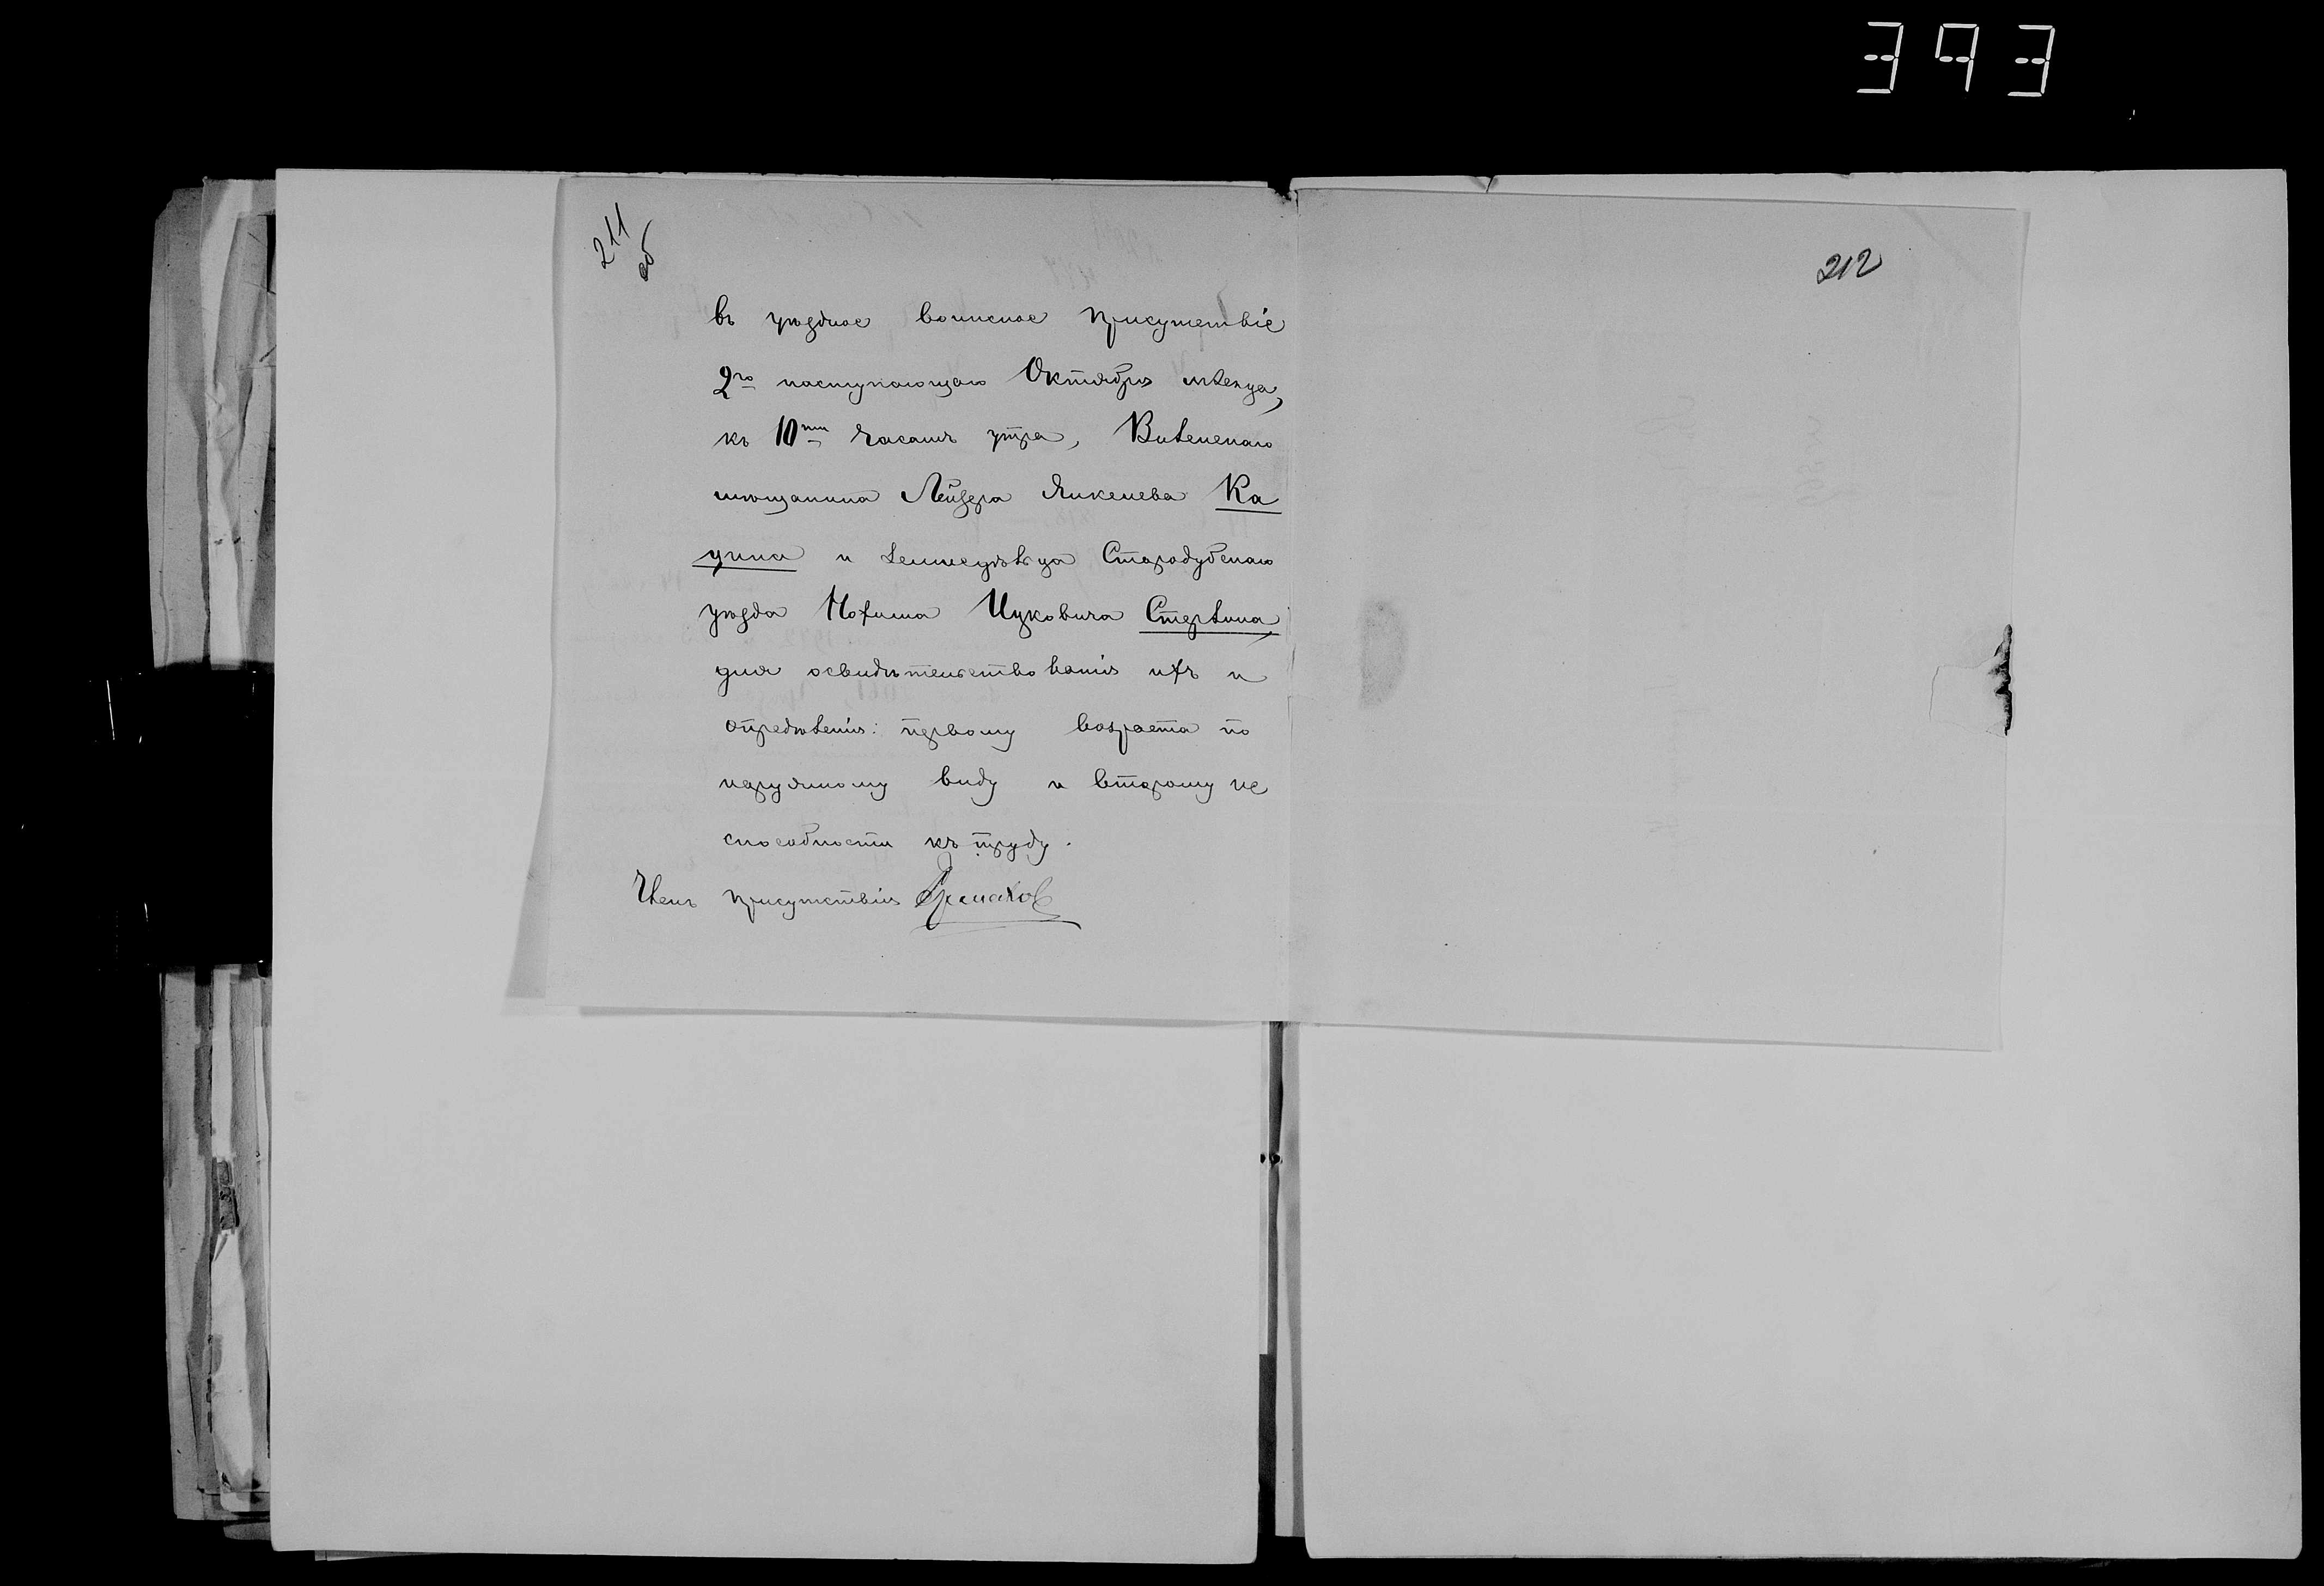 393
211
об
212
въ уѣздное воинское присутствіе
2го наступающаго Октября мѣсяца,
къ 10ти часамъ утра, Виленскаго
мѣщанина Лейзера Янкелева Ка
цина и земледѣльца Стародубскаго
уѣзда Нохима Ицковича
для освидѣтельствованія ихъ и
опредѣленія: первому возраста по
наружному виду и второму не
способности къ труду.
Членъ присутствія